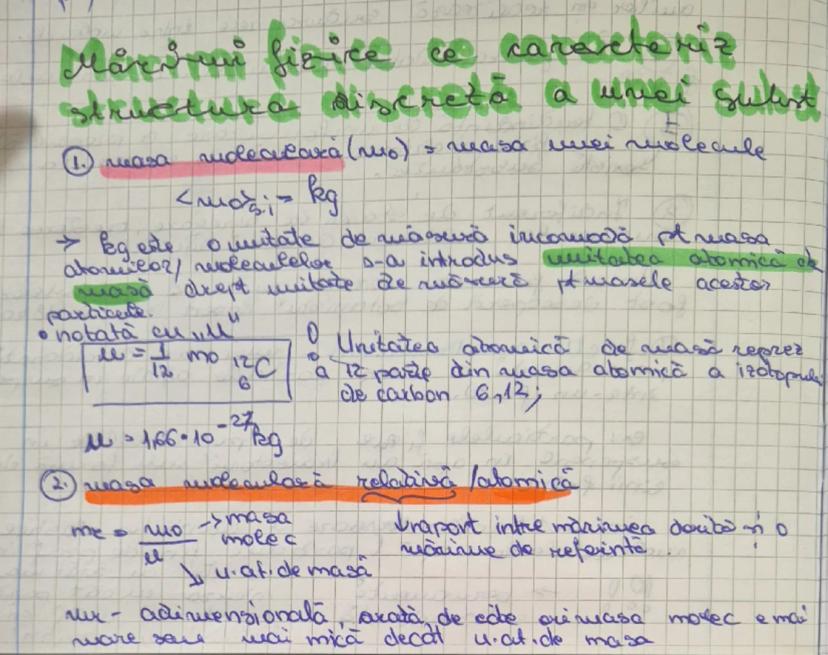 Mărimi fizice ce caracteriz
structura discretă a unei subst
1. masa moleculară (m₀) = masa unei molecule
<m₀>S.I = kg
→ kg este o unitate de măsură incomodă pt masa
atomilor/moleculelor s-a introdus unitatea atomică de
masă drept unitate de măsură pt masele acestor
particule.
• notată cu „u"
u = 1/12 m₀ ¹²₆C
Unitatea atomică de masă reprez
a 12 parte din masa atomică a izotopului
de carbon 6,12;
u = 1,66 • 10⁻²⁷ kg
2. masa moleculară relativă /atomică
mr = m₀/u → masa
molec
↘ u.at.de masă
raport între mărimea dorită și o
mărime de referință.
mr - adimensională, arată de câte ori masa molec e mai
mare sau mai mică decât u.at.de masa